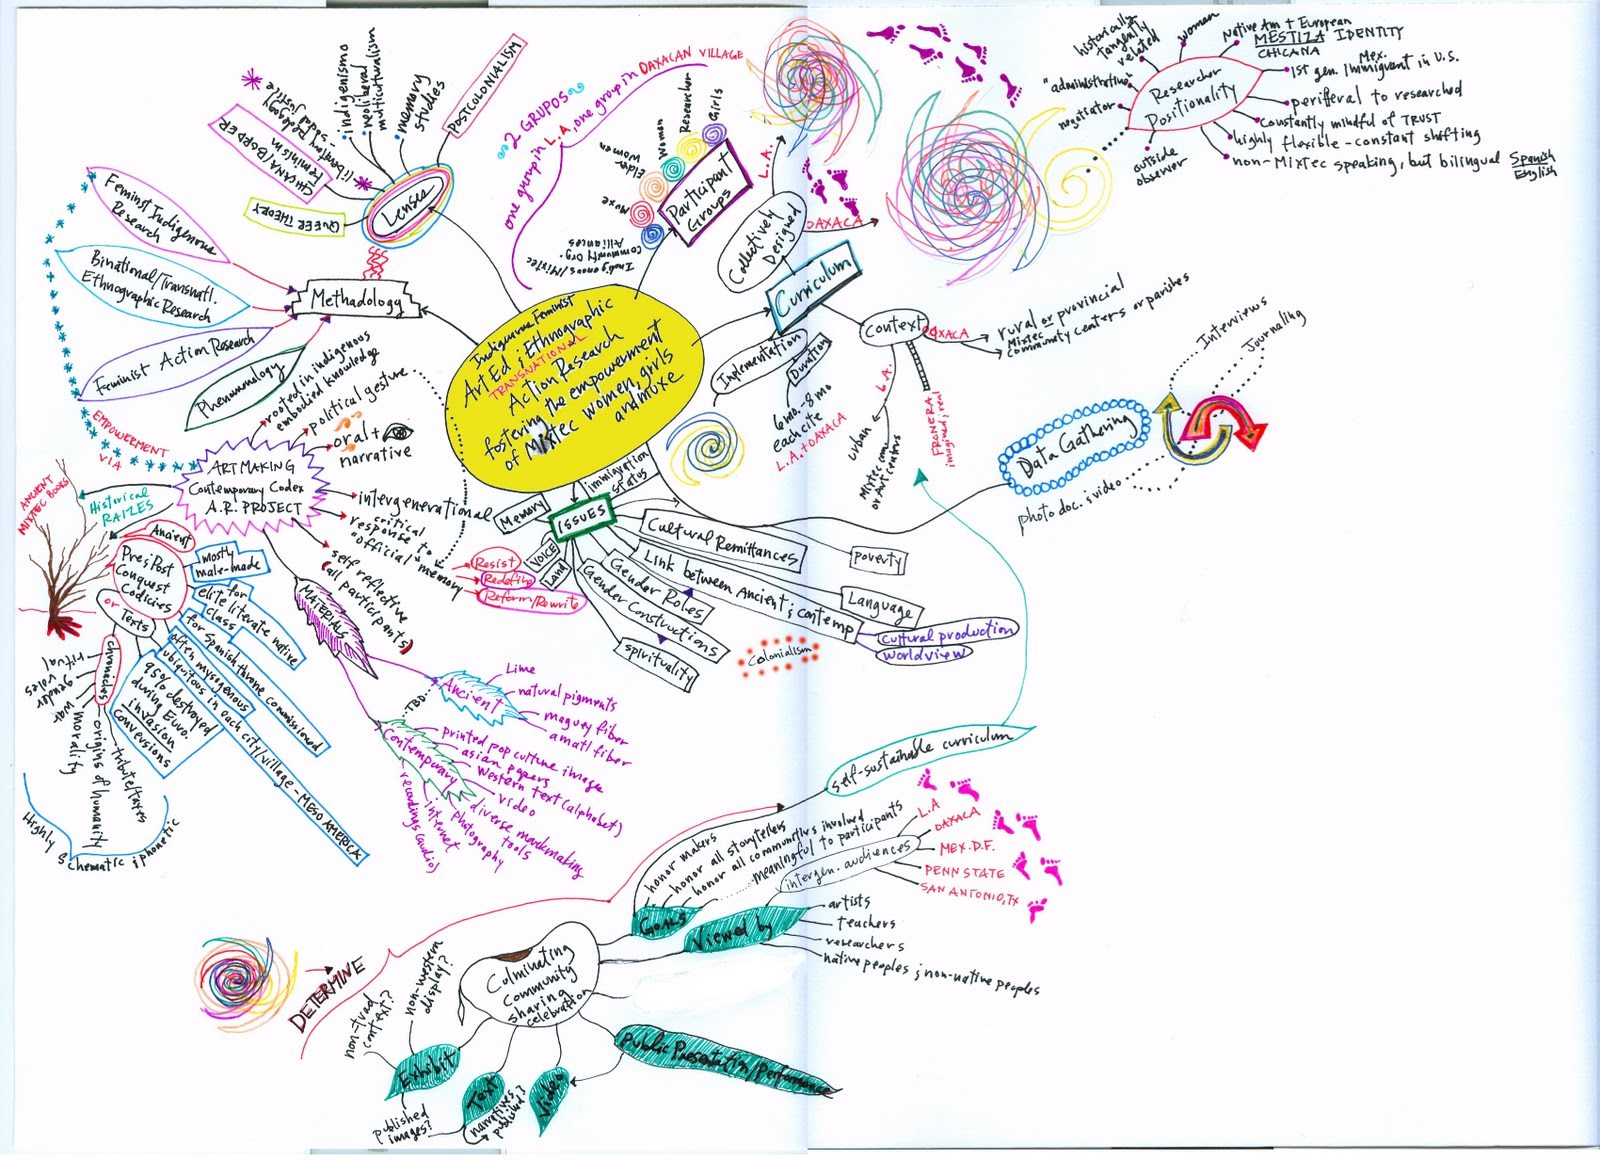 Indigenous Feminist
Art Ed & Ethnographic
TRANSNATIONAL
Action Research
fostering the empowerment
of Mixtec women, girls
and muxe
Lenses
POSTCOLONIALISM
memory
studies
neoliberal
multiculturalism
indigenismo
CHICANA/BORDER
FEMINISM
QUEER THEORY
Methadology
Feminist Indigenous
Research
Binational/Transnatl.
Ethnographic Research
Feminist Action Research
Phenumnology
2 GRUPOS
one group in L.A, one group in OAXACAN VILLAGE
Participant
Groups
Girls
Researcher
Women
Elder
Women
Muxe
Indigenous/Mixtec
Community Org.
Alliances
Collectively
Designed
L.A.
OAXACA
Curriculum
Implementation
Duration
6 mo. - 8 mo
each cite
L.A. + OAXACA
Context
OAXACA
rural or provincial
Mixtec
community centers or parishes
L.A.
urban
Mixtec comm.
or Art centers
FRONERA
imagined; real
Researcher
Positionality
historically
tangently
related
woman
Native Am + European
MESTIZA IDENTITY
CHICANA
Mex.
1st gen. Immigrant in U.S.
perifferal to researched
constantly mindful of TRUST
highly flexible - constant shifting
non-Mixtec speaking, but bilingual Spanish
English
outside
observer
negotiator
"administrative"
Data Gathering
Interviews
Journaling
photo doc. & video
ISSUES
immigration
status
Memory
VOICE
LAND
Cultural Remittances
poverty
Link between Ancient & contemp
Language
cultural production
worldview
Gender Roles
Gender Constructions
spirituality
Colonialism
EMPOWERMENT
VIA
ART MAKING
Contemporary Codex
A.R. PROJECT
rooted in indigenous
embodied knowledge
political gesture
oral +
narrative
intergenerational
critical
response to
"official" memory
Resist
Redefine
Reform/Rewrite
self reflective
(all participants)
Historical
RAIZES
ANCIENT
MIXTEC BOOKS
Ancient
Pre & Post
Conquest
Codicies
or
Texts
mostly
male-made
for
elite literate native
class
for Spanish throne commissioned
often mysogenous
ubiquitous in each city/village - MESO AMERICA
95% destroyed
during Euro.
invasion
conversions
chronicles
ritual
gender
roles
war
morality
origins of humanity
tribute/taxes
Highly schematic & phonetic
MATERIALS
Ancient
Lime
natural pigments
maguey fiber
amatl fiber
TBD
Contemporary
printed pop culture image
asian papers
Western text (alphabet)
video
diverse markmaking
tools
photography
internet
recordings (audio)
self-sustainable curriculum
GOALS
honor makers
honor all storytellers
honor all communities involved
meaningful to participants
Viewed by
intergen. audiences
L.A
OAXACA
MEX. D.F.
PENN STATE
SAN ANTONIO, TX
artists
teachers
researchers
native peoples & non-native peoples
Culminating
community
sharing
celebration
DETERMINE
Exhibit
non-trad
context?
non-western
display?
published
images?
Text
narratives
published?
Video
Public Presentation/Performance